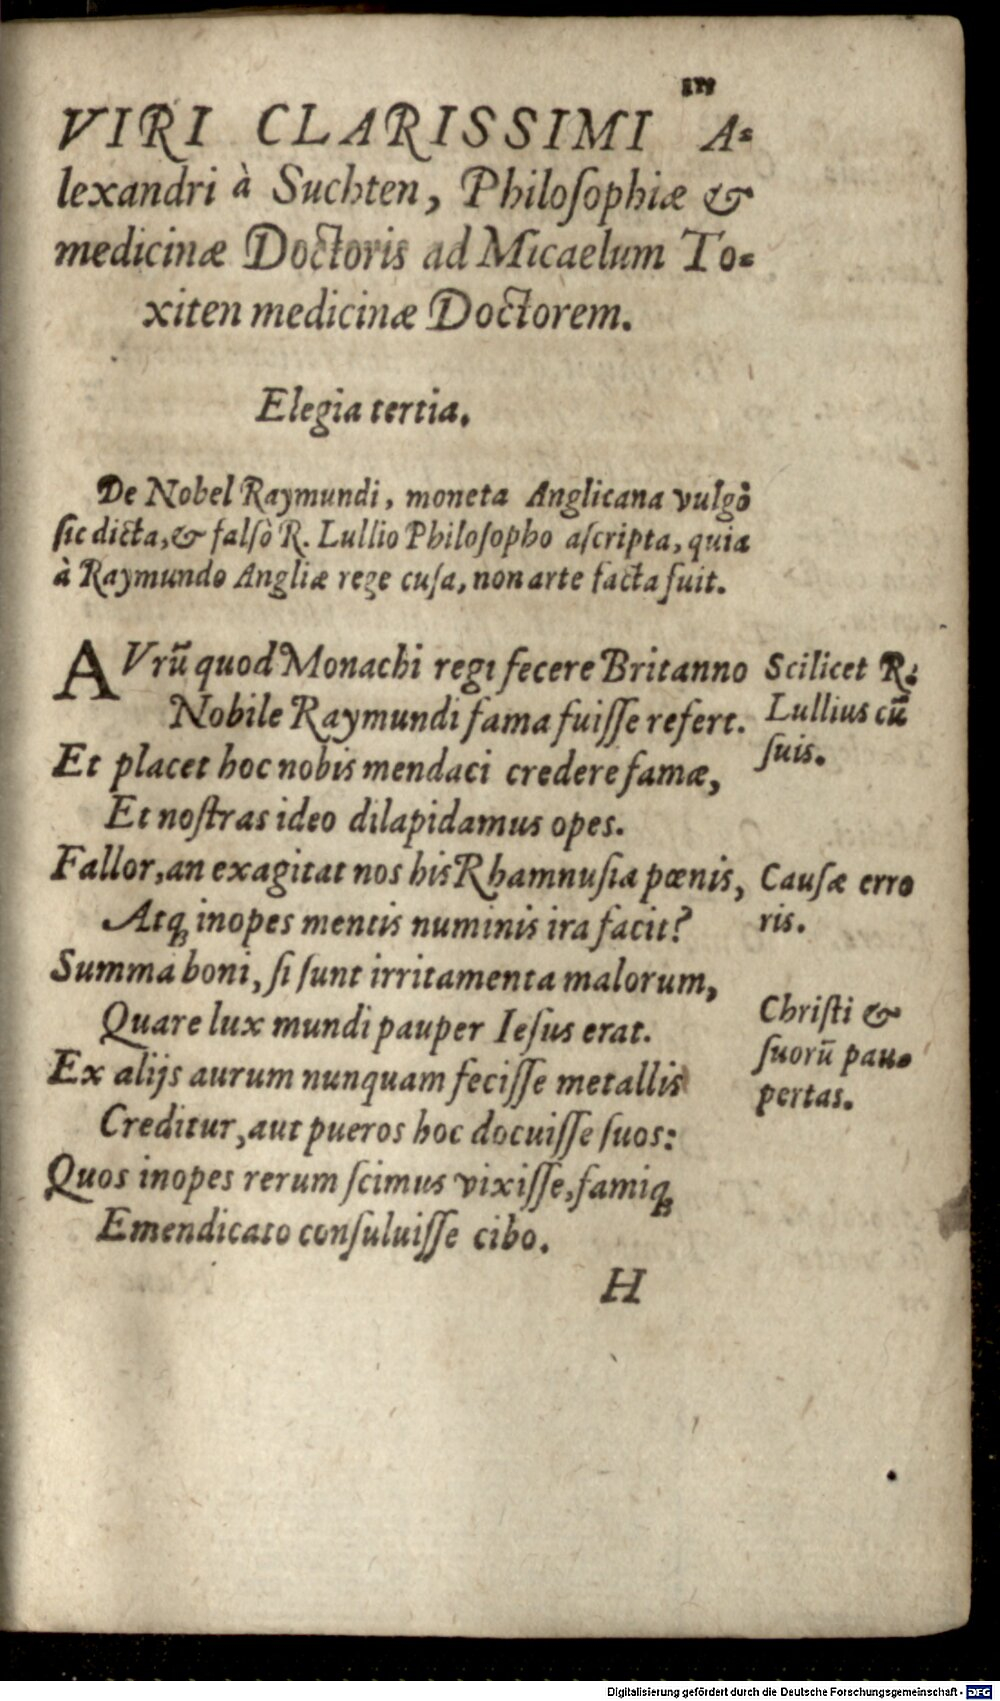 VIRI CLARISSIMI A-
lexandri à Suchten, Philoſophiæ &
medicinæ Doctoris ad Micaelum To-
xiten medicinæ Doctorem.
Elegia tertia.
De Nobel Raymundi, moneta Anglicana vulgò
ſic dicta, & falſò R. Lullio Philoſopho aſcripta, quia
à Raymundo Angliæ rege cuſa, non arte facta fuit.
AVrū quod Monachi regi fecere Britanno
Nobile Raymundi fama fuiſſe refert.
Et placet hoc nobis mendaci credere famæ,
Et noſtras ideo dilapidamus opes.
Fallor, an exagitat nos his Rhamnuſia pœnis,
Atq; inopes mentis numinis ira facit?
Summa boni, ſi ſunt irritamenta malorum,
Quare lux mundi pauper Ieſus erat.
Ex alijs aurum nunquam feciſſe metallis
Creditur, aut pueros hoc docuiſſe ſuos:
Quos inopes rerum ſcimus vixiſſe, famiq;
Emendicato conſuluiſſe cibo.
H
Scilicet R.
Lullius cū
ſuis.
Cauſæ erro
ris.
Chriſti &
ſuorū pau-
pertas.
Digitalisierung gefördert durch die Deutsche Forschungsgemeinschaft - DFG